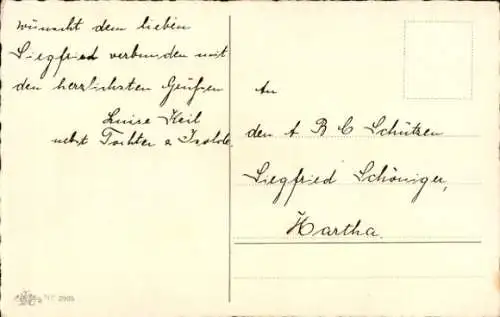 wünscht dem lieben
Siegfried verbunden mit
den herzlichsten Grüßen
Luise Keil
nebst Tochter u Isolde
An
den A B C Schützen
Siegfried Schöniger,
Hartha.
Nr. 2905